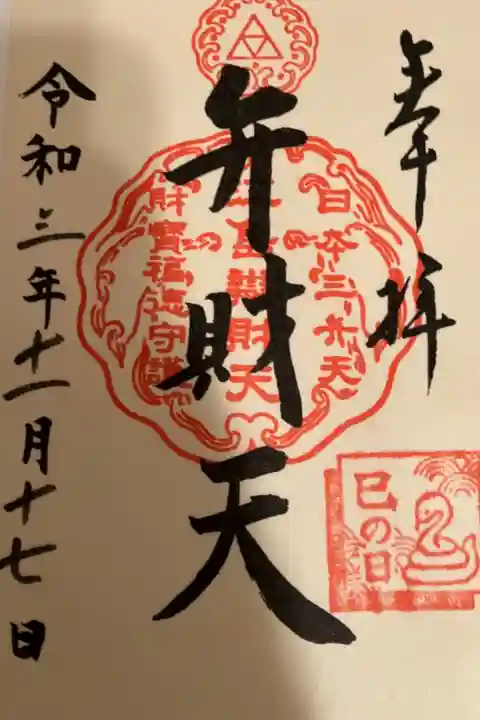 奉拝
日本三弁天
弁財天
財寳福徳守護
巳の日
令和三年十一月十七日